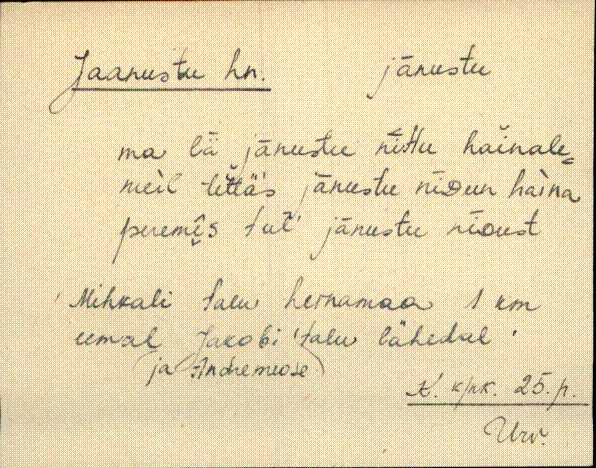 Jaanustu hn. jānustu
ma lä jānustu nīttu hainale
meìl tettä's jānustu nīdun haìna
peremîs tuľ jānustu nīdust
Mihkali talu heinamaa 1 km
eemal Jakobi talu lähedal
(ja Andremeose)
K. k/nk. 25. p.
Urv.